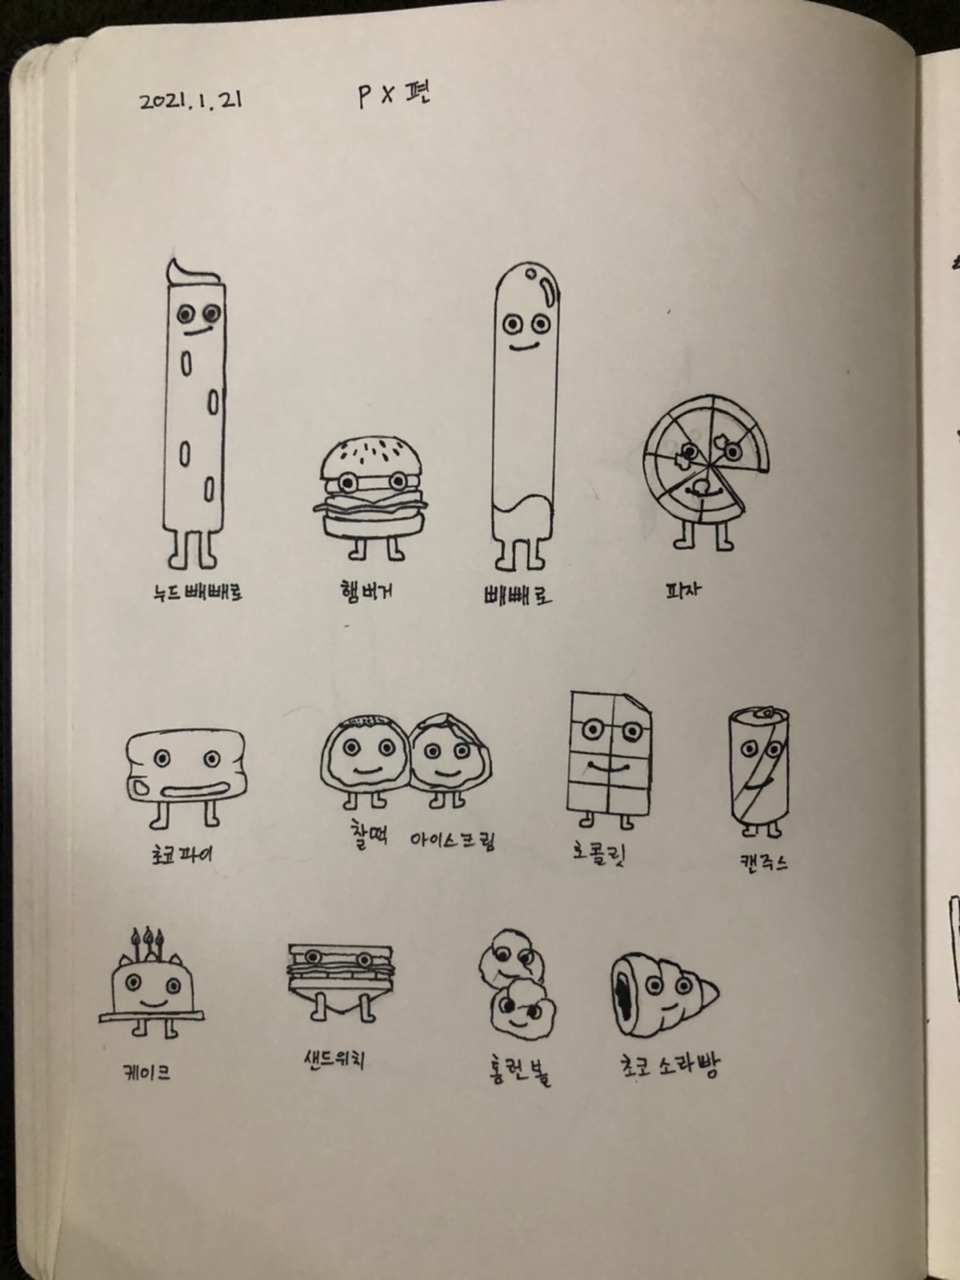 2021.1.21 PX편
누드빼빼로 햄버거 빼빼로 피자
초코파이 찰떡 아이스크림 초콜릿 캔쥬스
케이크 샌드위치 홈런볼 초코 소라빵